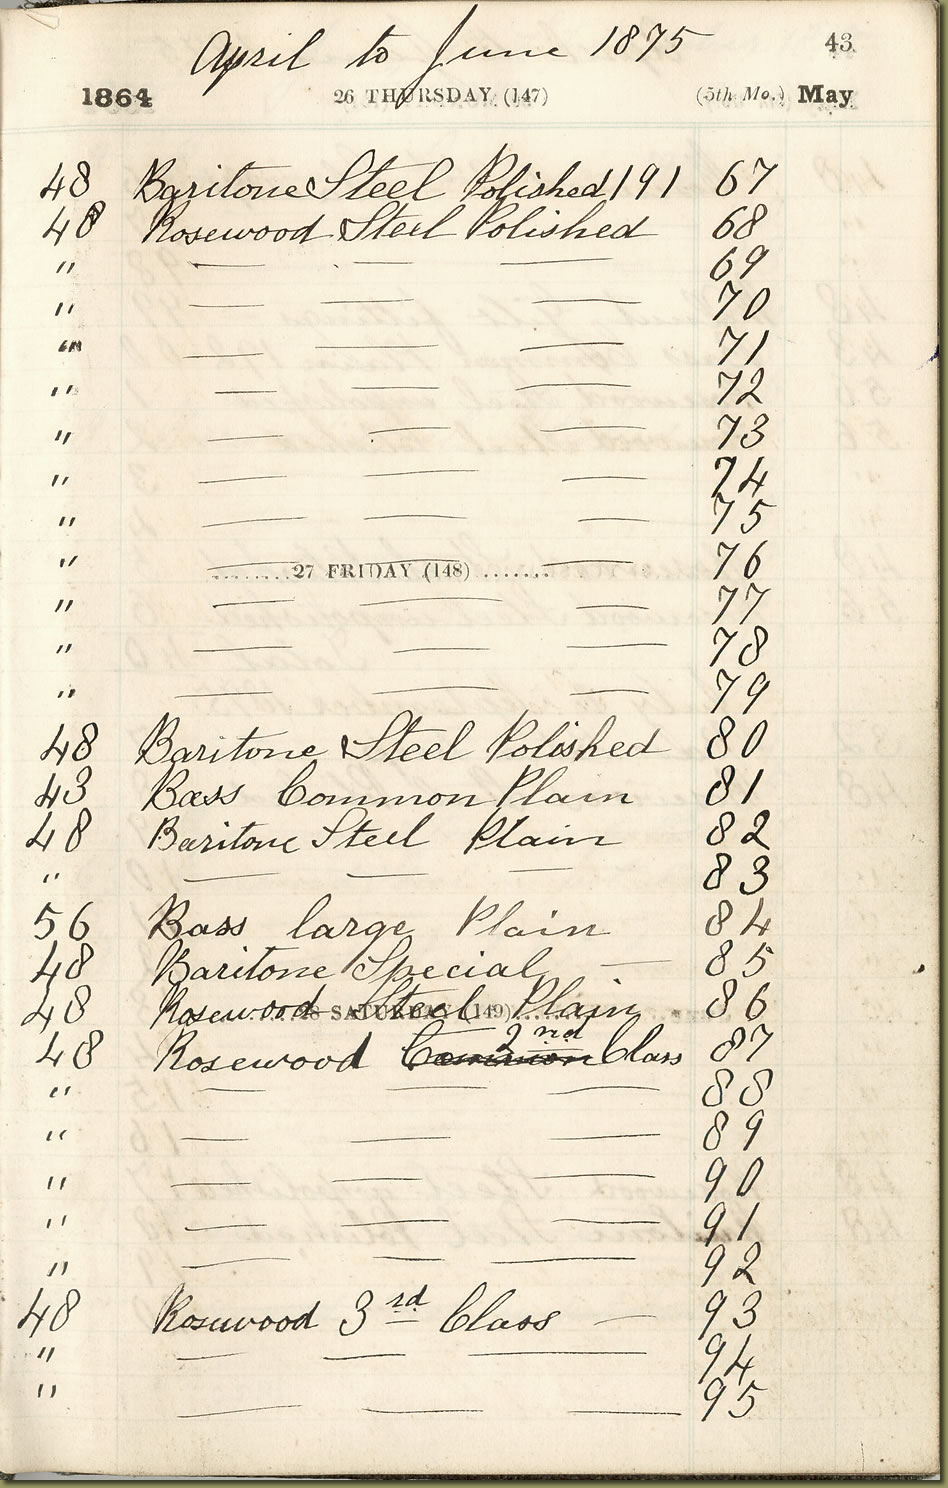 April to June 1875
43
1864 26 THURSDAY (147) (5th Mo.) May
48 Baritone Steel Polished 191 67
48 Rosewood Steel Polished 68
" — — — 69
" — — — 70
" — — — 71
" — — — 72
" — — — 73
" — — — 74
" — — — 75
" — — — 76
........27 FRIDAY (148).......
" — — — 77
" — — — 78
" — — — 79
48 Baritone Steel Polished 80
43 Bass Common Plain 81
48 Baritone Steel Plain 82
" — — — 83
56 Bass large Plain 84
48 Baritone Special — 85
48 Rosewood Steel Plain 86
28 SATURDAY (149)
48 Rosewood Common 2nd Class 87
" — — — 88
" — — — 89
" — — — 90
" — — — 91
" — — — 92
48 Rosewood 3rd Class — 93
" — — — 94
" — — — 95